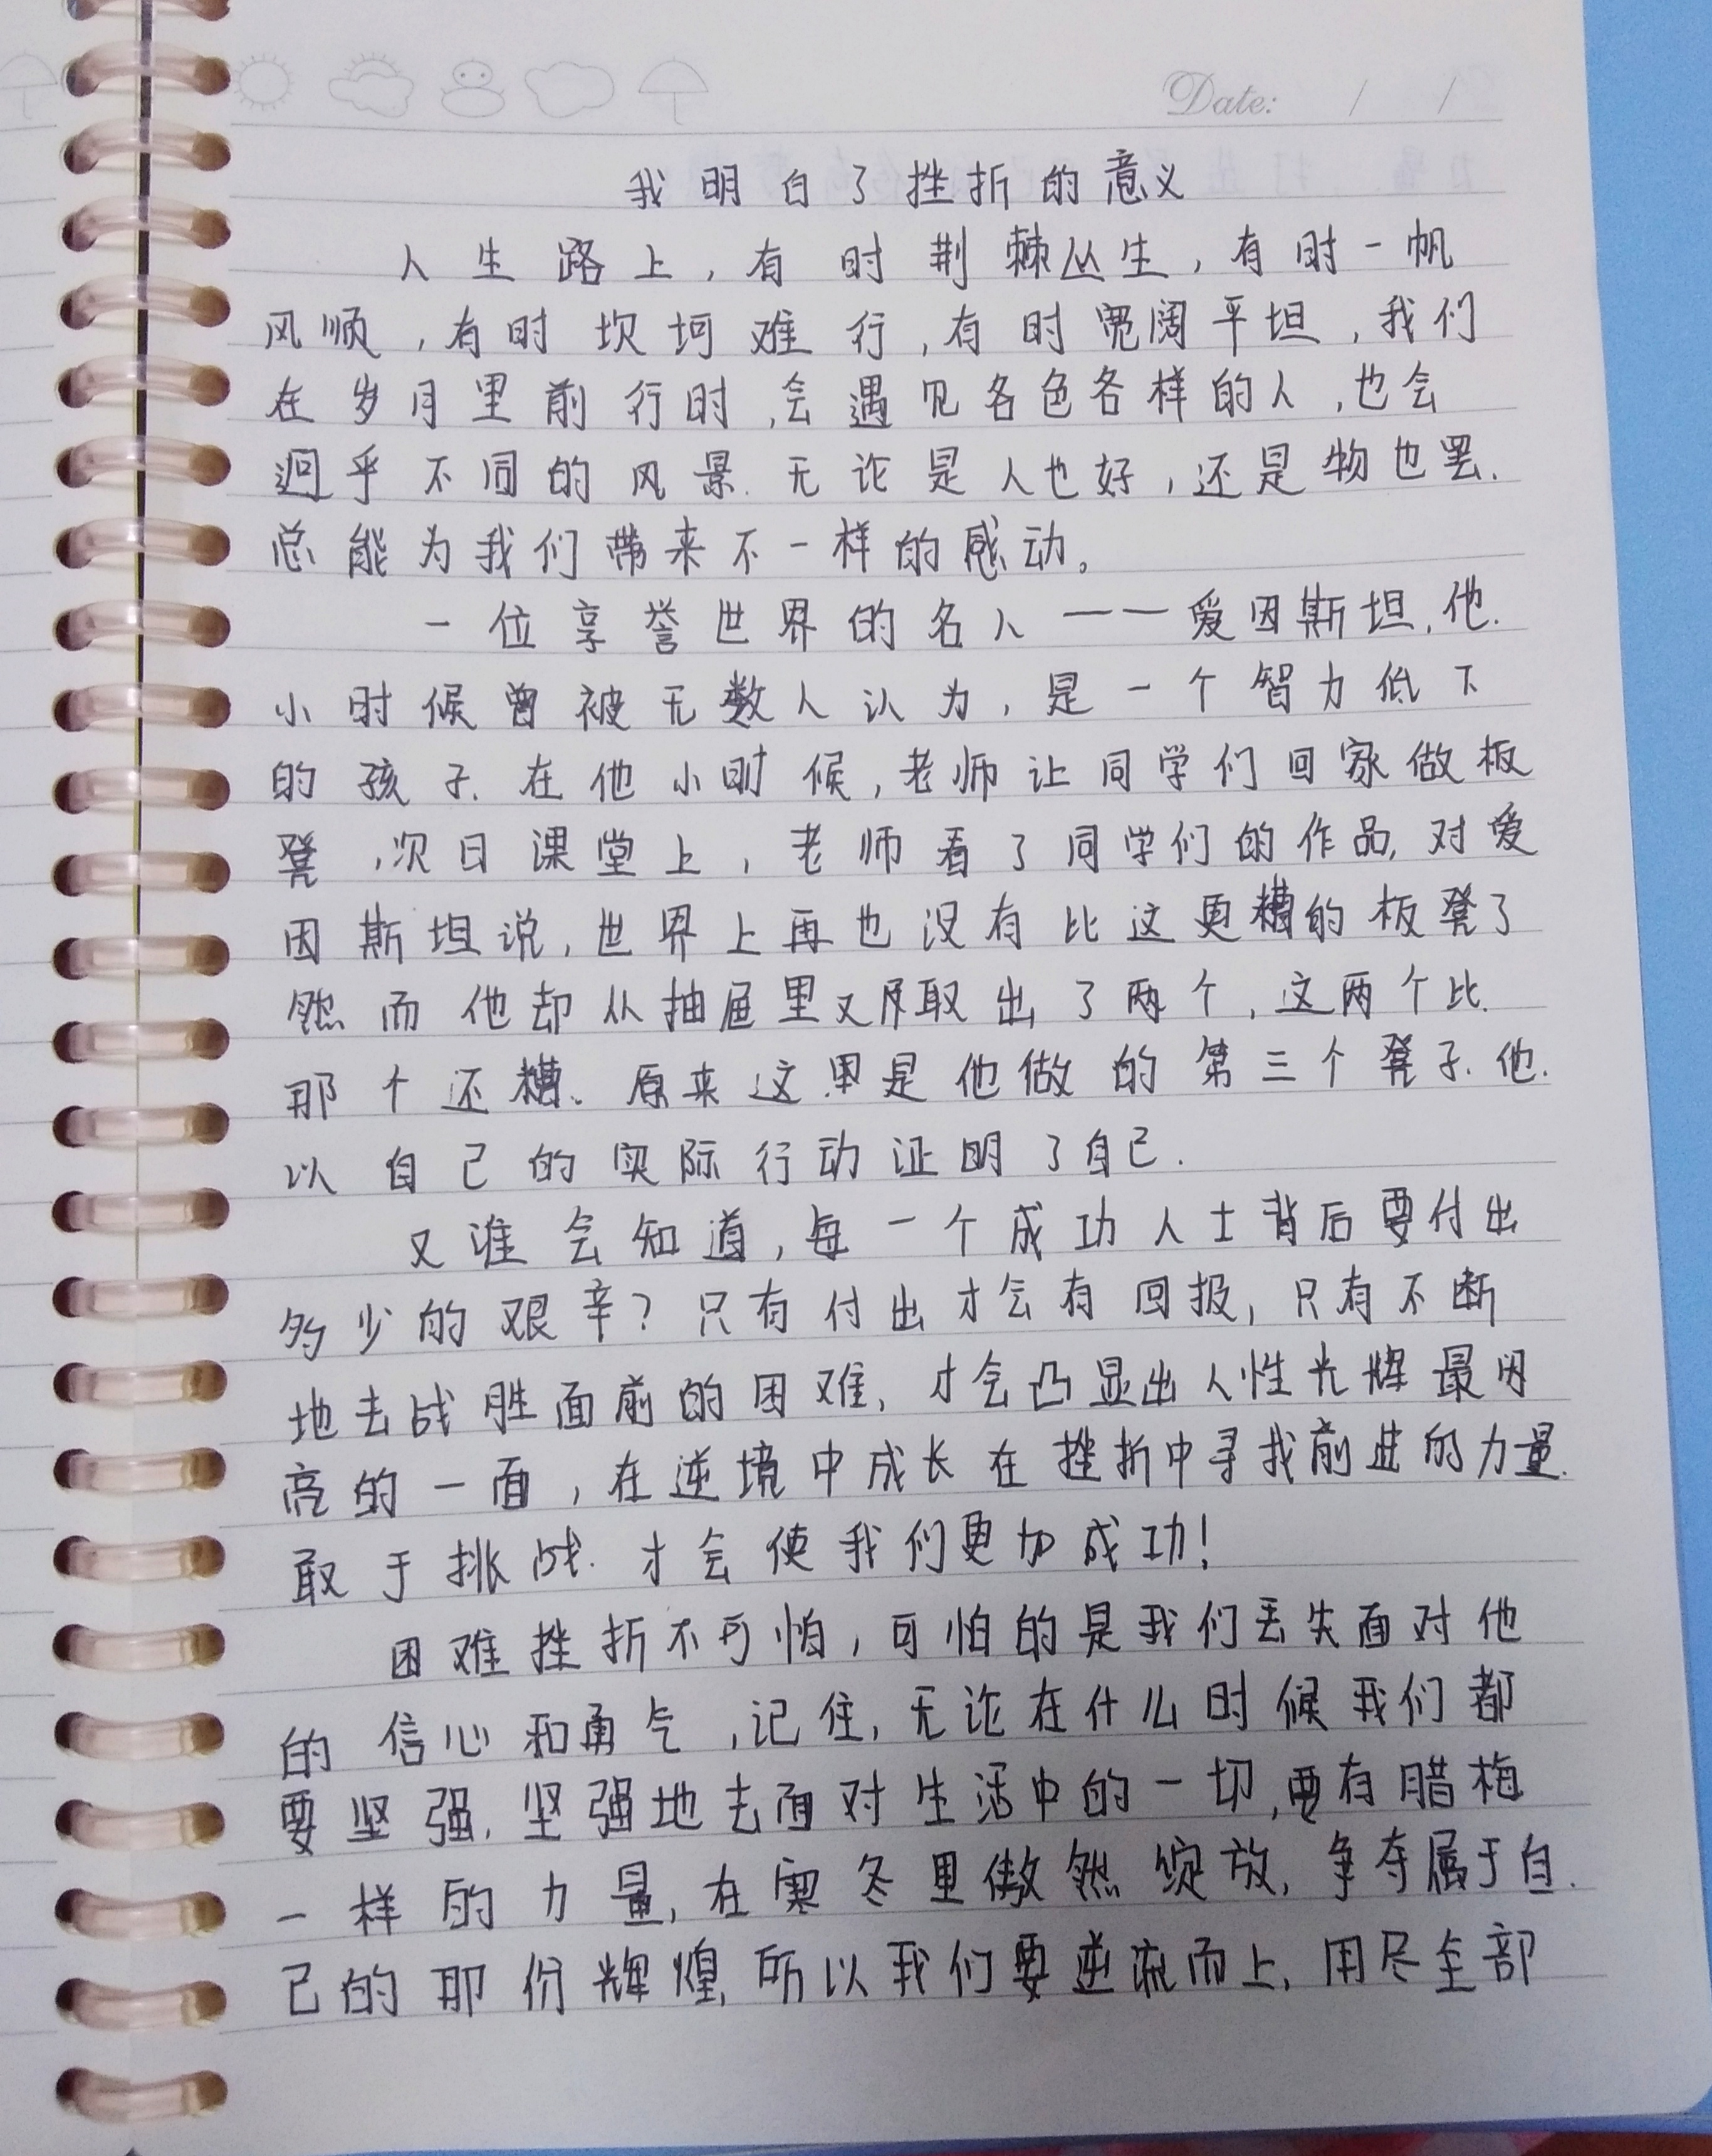 Date: / /
我明白了挫折的意义
人生路上,有时荆棘丛生,有时一帆
风顺,有时坎坷难行,有时宽阔平坦,我们
在岁月里前行时,会遇见各色各样的人,也会
迥乎不同的风景.无论是人也好,还是物也罢.
总能为我们带来不一样的感动。
一位享誉世界的名人——爱因斯坦,他.
小时候曾被无数人认为,是一个智力低下
的孩子.在他小时候,老师让同学们回家做板
凳,次日课堂上,老师看了同学们的作品,对爱
因斯坦说,世界上再也没有比这更糟的板凳了
然而他却从抽屉里又取出了两个,这两个比.
那个还糟、原来这里是他做的第三个凳子.他.
以自己的实际行动证明了自己.
又谁会知道,每一个成功人士背后要付出
多少的艰辛?只有付出才会有回报,只有不断
地去战胜面前的困难,才会凸显出人性光辉最明
亮的一面,在逆境中成长在挫折中寻找前进的力量.
敢于挑战.才会使我们更加成功!
困难挫折不可怕,可怕的是我们丢失面对他
的信心和勇气,记住,无论在什么时候我们都
要坚强,坚强地去面对生活中的一切,要有腊梅
一样的力量,在寒冬里傲然绽放,争夺属于自.
己的那份辉煌,所以我们要逆流而上,用尽全部